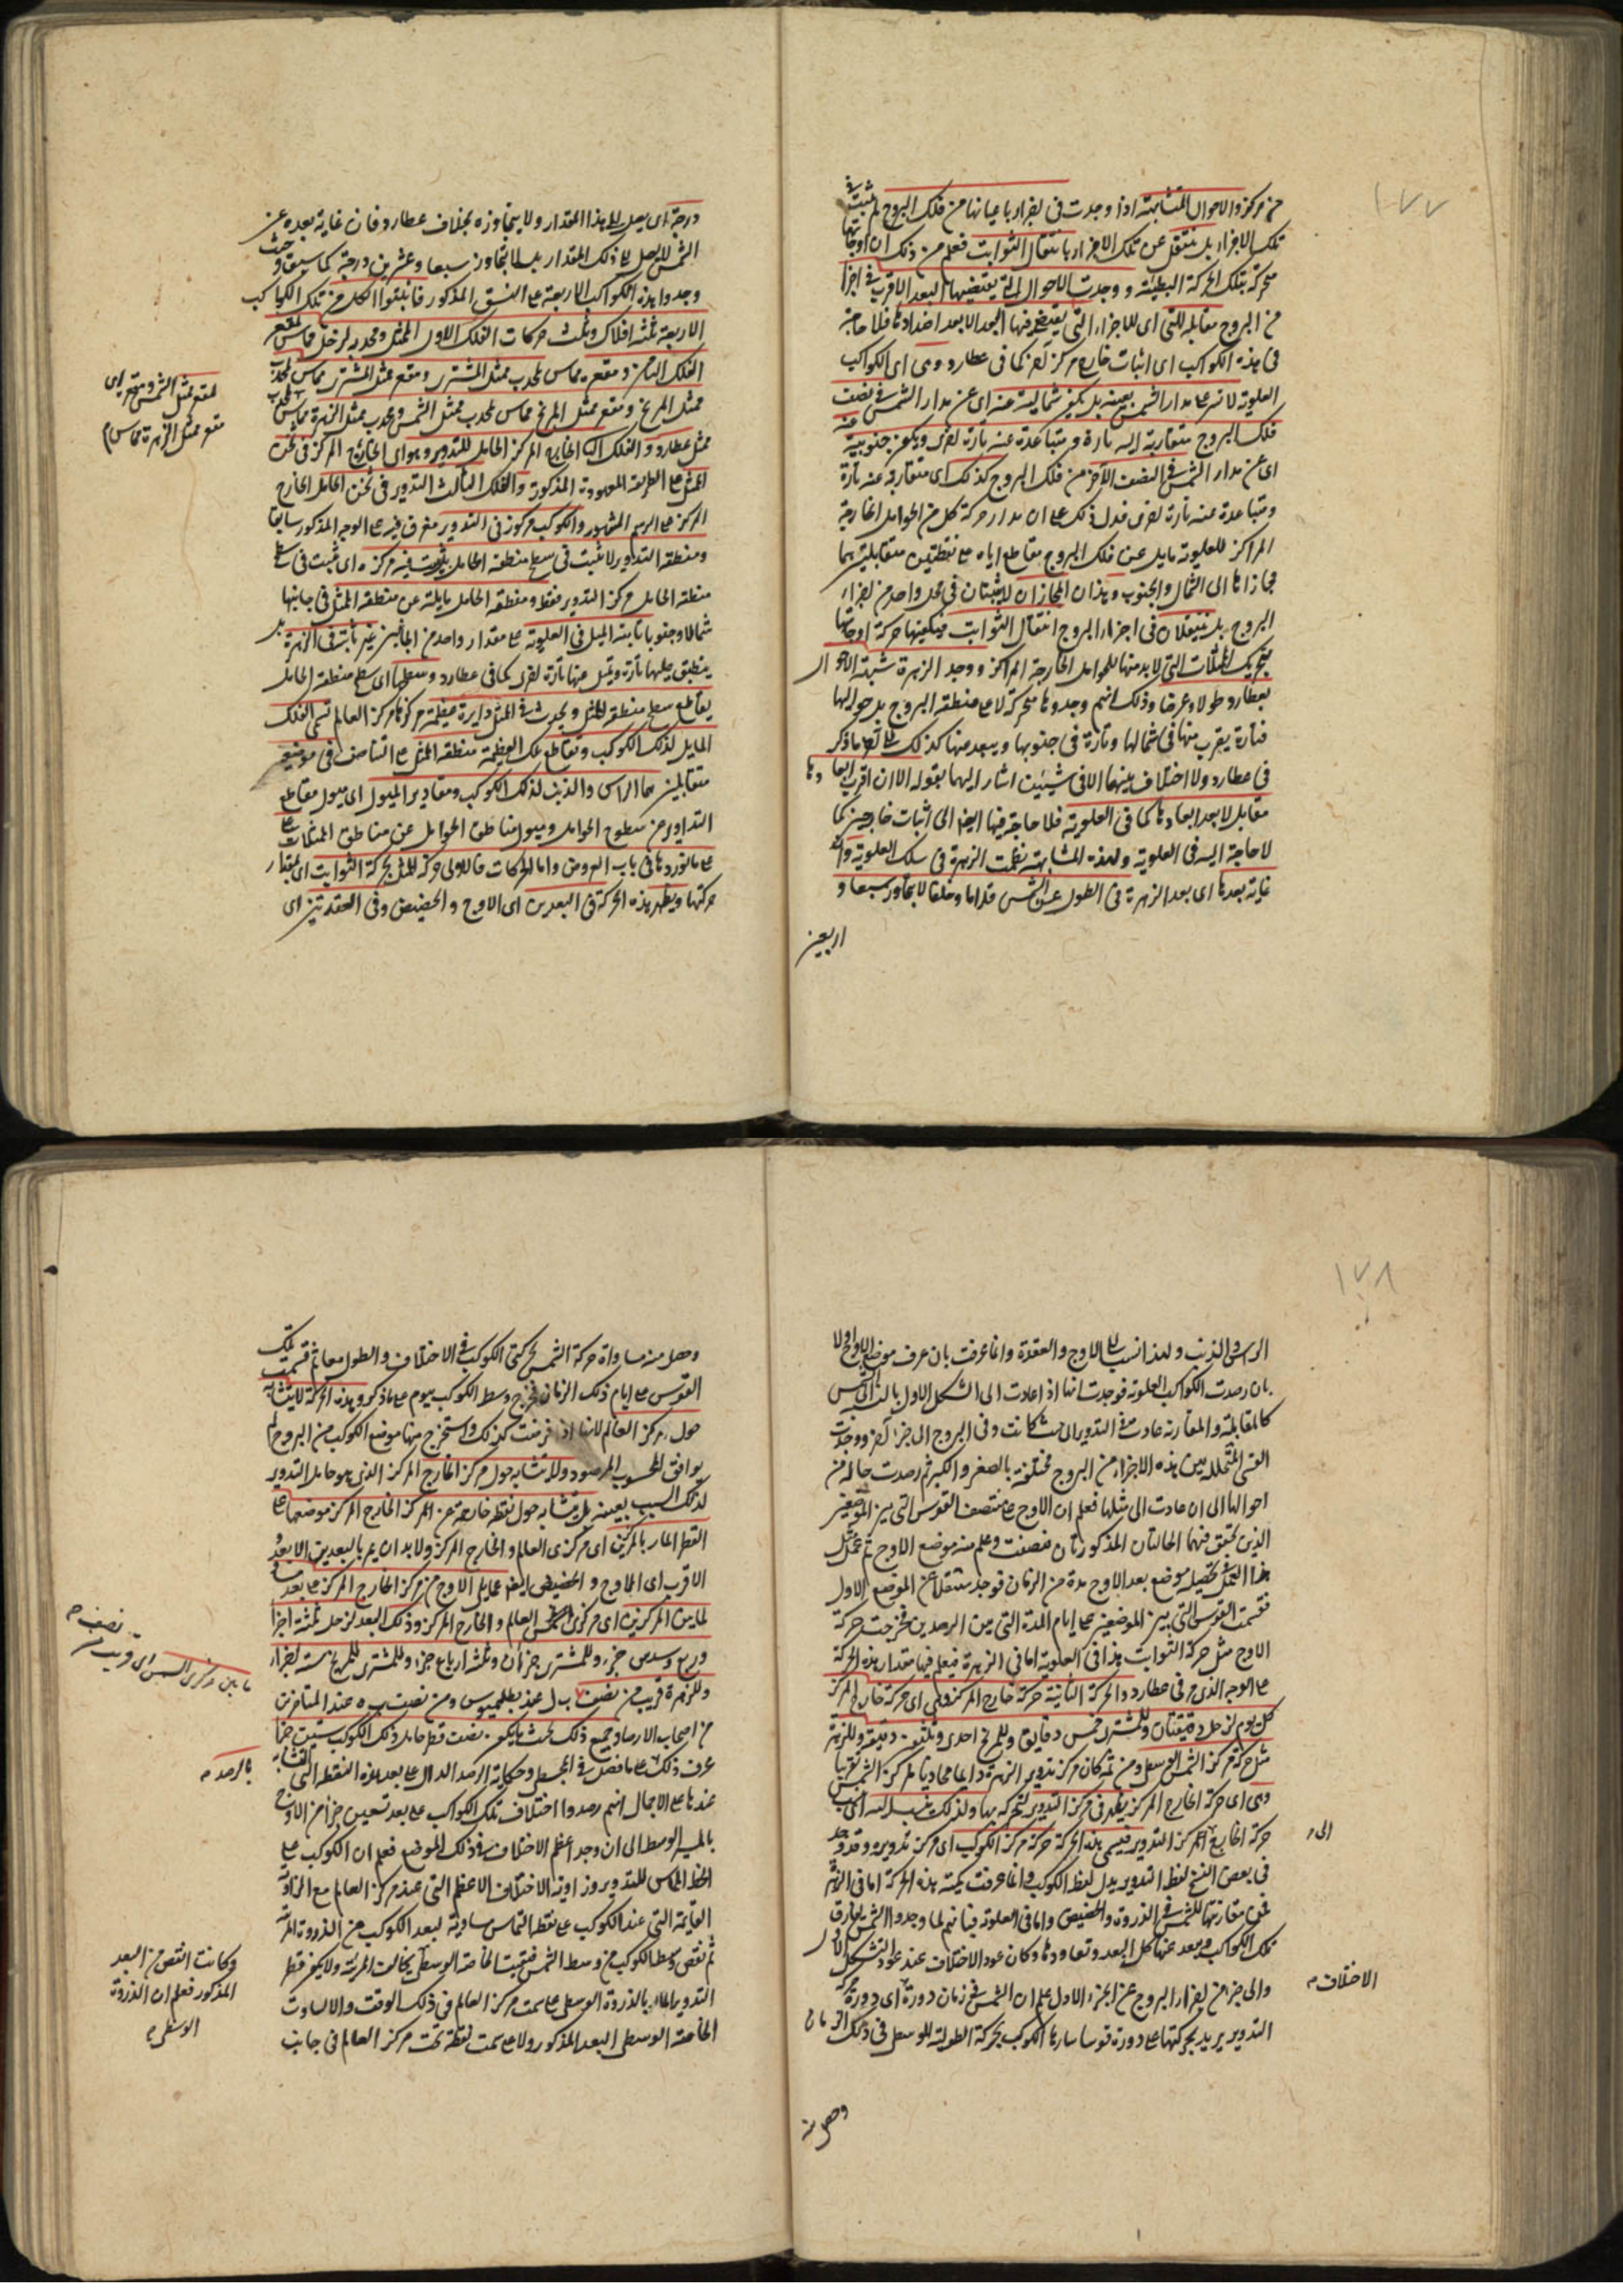 ١٧٧
خر مركز والاحوال المتشابهة اذا وجدت فى اجزاء باعيانها من فلك البروج لم تثبت فى
تلك الاجزاء بل تنتقل عن تلك الاجزاء بانتقال الثوابت فعلم من ذلك ان اوجاتها
متحركة بتلك الحركة البطيئة ووجدت الاحوال التى يقتضيها البعد الاقرب فى اجزا
من البروج مقابلة للتى اى للاجزاء التى يقتضى فيها البعد الابعد اضدادها فلا حاجة
فى هذه الكواكب اى اثبات خارج مركز آخر كما فى عطارد وهى اى الكواكب
العلوية لا تسير على مدار الشمس بعينه بل تكون شمالية عنه اى عن مدار الشمس فى نصف
فلك البروج متقاربة اليه تارة ومتباعدة عنه تارة اخرى ويكون جنوبية عنه
اى عن مدار الشمس فى النصف الآخر من فلك البروج كذلك اى متقاربة عنه تارة
ومتباعدة عنه تارة اخرى فدل ذلك على ان مدار حركة كل من الحوامل الخارجة
المراكز للعلوية مايل عن فلك البروج مقاطع اياه على نقطتين متقابلتين هما
مجازاها الى الشمال والجنوب وهذان المجازان لا يثبتان فى محل واحد من اجزاء
البروج بل ينتقلان فى اجزاء البروج انتقال الثوابت فيكون حركة اوجاتها
بتحريك الممثلات التى لا بد منها للحوامل الخارجة المراكز ووجد الزهرة شبيهة الاحوال
بعطارد طولا وعرضا وذلك انهم وجدوها متحركة لا على منطقة البروج بل حواليها
فتارة يقرب منها فى شمالها وتارة فى جنوبها ويبعد منها كذلك على نحو ما ذكر
فى عطارد ولا اختلاف بينهما الا فى شيئين اشار اليهما بقوله الا ان اقرب ابعادها
مقابل لابعد ابعادها كما فى العلوية فلا حاجة فيها ايضا الى اثبات خارجين كما
لا حاجة اليه فى العلوية ولهذه المشابهة نظمت الزهرة فى سلك العلوية وان
غاية بعدها اى بعد الزهرة فى الطول عن الشمس قداما وخلفا لا يتجاوز سبعا و
اربعين
درجة اى يصل الى هذا المقدار ولا يتجاوزه بخلاف عطارد فان غاية بعده عن
الشمس لا يصل الى ذلك المقدار بل لا يتجاوز سبعا وعشرين درجة كما سبق وحيث
وجدوا هذه الكواكب الاربعة على النسق المذكور فاثبتوا لكل من تلك الكواكب
الاربعة ثلثة افلاك وثلث حركات الفلك الاول الممثل ومحدبه لزحل مماس لمقعر
الفلك الثامن ومقعره مماس لمحدب ممثل المشترى ومقعر ممثل المشترى مماس لمحدب
ممثل المريخ ومقعر ممثل المريخ مماس لمحدب ممثل الشمس ومحدب ممثل الزهرة مماس
ممثل عطارد والفلك الثانى الخارج المركز الحامل للتدوير وهو اى الخارج المركز فى ثخن
الممثل على الطريقة المعهودة المذكورة والفلك الثالث التدوير فى ثخن الحامل الخارج
المركز على الرسم المشهور والكوكب مركوز فى التدوير مغرق فيه على الوجه المذكور سابقا
ومنطقة التداوير لا تثبت فى سطح منطقة الحامل بل يثبت فيه مركزه اى يثبت فى سطح
منطقة الحامل مركز التدوير فقط ومنطقة الحامل مايلة عن منطقة الممثل فى جانبها
شمالا وجنوبا ثابتة الميل فى العلوية على مقدار واحد من الجانبين غير ثابتة فى الزهرة بل
ينطبق عليها تارة ويميل عنها تارة اخرى كما فى عطارد وسطحها اى سطح منطقة الحامل
يقاطع سطح منطقة الممثل ويحدث فى الممثل دايرة عظيمة مركزها مركز العالم تسمى الفلك
المايل لذلك الكوكب وتقاطع تلك العظيمة منطقة الممثل على التناصف فى موضعين
متقابلين هما الراس والذنب لذلك الكوكب ومقادير الميول اى ميول مقاطع
التداوير عن سطوح الحوامل وميول مناطق الحوامل عن مناطق الممثلات
على ما نوردها فى باب العروض واما الحركات فالاولى حركة الممثل بحركة الثوابت اى بمقدار
حركتها ويظهر هذه الحركة فى البعدين اى الاوج والحضيض وفى العقدتين اى
لمقعر ممثل الشمس ومقعره اى
مقعر ممثل الزهرة مماس
١٧٨
الراس والذنب ولهذا نسب الى الاوج والعقدة وانما عرفت بان عرف موضع الاوج اولا
بان رصدت الكواكب العلوية فوجدت انها اذا عادت الى الشكل الاول بالنسبة الى الشمس
كالمقابلة والمقارنة عادت فى التدوير الى حيث كانت وفى البروج الى جزء آخر ووجدت
القسى المتخللة بين هذه الاجزاء من البروج مختلفة بالصغر والكبر ثم رصدت حالة من
احوالها الى ان عادت الى مثلها فعلم ان الاوج على منتصف القوس التى بين الموضعين
الذين تحقق فيهما الحالتان المذكورتان فنصفت وعلم منه موضع الاوج ثم عمل
هذا العمل لتحصيل موضع بعد الاوج مدة من الزمان فوجد منتقلا عن الموضع الاول
فقسمت القوس التى بين الموضعين على ايام المدة التى بين الرصدين فخرجت حركة
الاوج مثل حركة الثوابت هذا فى العلوية اما فى الزهرة فيعلم فيها مقدار هذه الحركة
على الوجه الذى مر فى عطارد والحركة الثانية حركة خارج المركز وهى اى حركة خارج المركز
كل يوم لزحل دقيقتان وللمشترى خمس دقايق وللمريخ احدى وثلثون دقيقة وللزهرة
مثل حركة مركز الشمس الوسطى ومن ثم كان مركز تدوير الزهرة دايما محاذيا لمركز الشمس تقريبا
وهى اى حركة الخارج المركز يظهر فى مركز التدوير لتحركه بها ولذلك ينسب اليه اى
حركة الخارج المركز التدوير فيسمى هذه الحركة حركة مركز الكوكب اى مركز تدويره وقد وجد
فى بعض النسخ لفظ التدوير بدل لفظ الكوكب وانما عرفت كمية هذه الحركة اما فى الزهرة
فمن مقارنتها للشمس فى الذروة والحضيض واما فى العلوية فبانهم لما وجدوا الشمس تفارق
تلك الكواكب ويبعد عنها كل البعد وتعاودها وكان عود الاختلاف عند عود التشكل الاول
والى جزء من اجزاء البروج عن الجزء الاول علم ان الشمس فى زمان دورة اى دورة مركز
التدوير يزيد بحركتها على دورة قوسا سارها الكوكب بحركة الطولية للوسطى فى ذلك الزمان
وحصل منه
الى
الاختلاف
وحصل منه مساواة حركة الشمس لحركتى الكوكب فى الاختلاف والطول معا ثم قسمت تلك
القوس على ايام ذلك الزمان فخرج وسط الكوكب ليوم على ما ذكر وهذه الحركة لا يتشابه
حول مركز العالم لانها اذا فرضت كذلك واستخرج منها موضع الكوكب من البروج لم
يوافق المحسوب المرصود ولا تتشابه حول مركز الخارج المركز الذى هو حامل التدوير
لذلك السبب بعينه بل يتشابه حول نقطة خارجة عن المركز الخارج المركز موضعها على
القطر المار بالمركزين اى مركزى العالم والخارج المركز ولا بد ان يمر بالبعدين الابعد و
الاقرب اى الاوج والحضيض ايضا مما يلى الاوج من مركز الخارج المركز على بعد مساو
لما بين المركزين اى مركزى العالم والخارج المركز وذلك البعد لزحل ثلثة اجزا
وربع وسدس جزء وللمشترى جزءان وثلثة ارباع جزء وللمريخ ستة اجزاء
وللزهرة قريب من نصف ب ل عند بطلميوس ومن نصف ب ه عند المتاخرين
من اصحاب الارصاد وجميع ذلك بحيث يكون نصف قطر حامل ذلك الكوكب ستين جزءا
عرف ذلك على ما فصل فى المجسطى وحكاية الرصد الدال على بعد هذه النقطة التى التشابه
عندها على الاجمال انهم رصدوا اختلاف تلك الكواكب على بعد تسعين جزءا من الاوج
بالمسير الوسط الى ان وجد اعظم الاختلاف فى ذلك الموضع فعلم ان الكوكب على
الخط المماس للتدوير وزاوية الاختلاف الاعظم التى عند مركز العالم مع الزاوية
القايمة التى عند الكوكب على نقطة التماس مساوية لبعد الكوكب عن الذروة المرئية
ثم نقص وسط الكوكب من وسط الشمس فبقيت الخاصة الوسطى يخالف المرئية ولا يكون قطر
التدوير المار بالذروة الوسطى على سمت مركز العالم فى ذلك الوقت والا لساوت
الخاصة الوسطى البعد المذكور ولا على سمت نقطة تحت مركز العالم فى جانب
بالرصد
وكانت انقص من البعد
المذكور فعلم ان الذروة
الوسطى